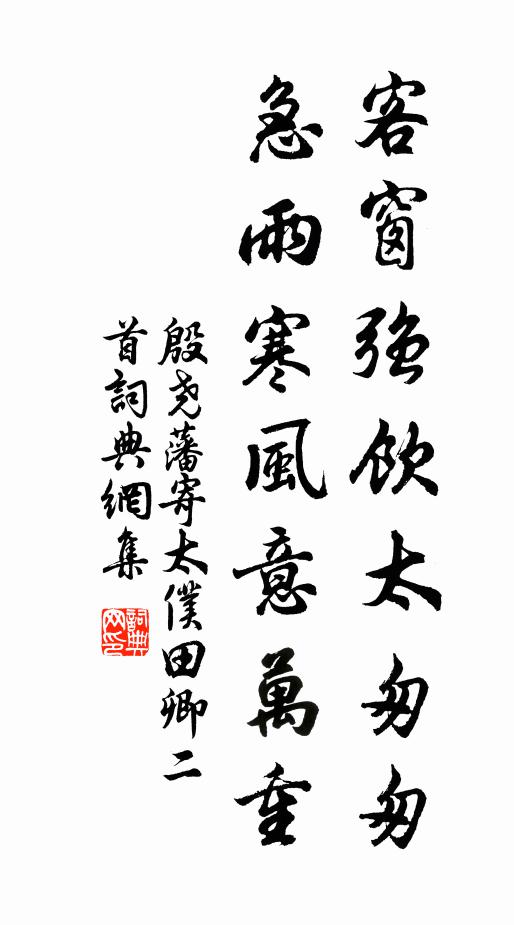 客窗強飲太匆匆
急雨寒風意萬重
殷尧藩寄太僕田卿二
首詞典網集
詞典
网印